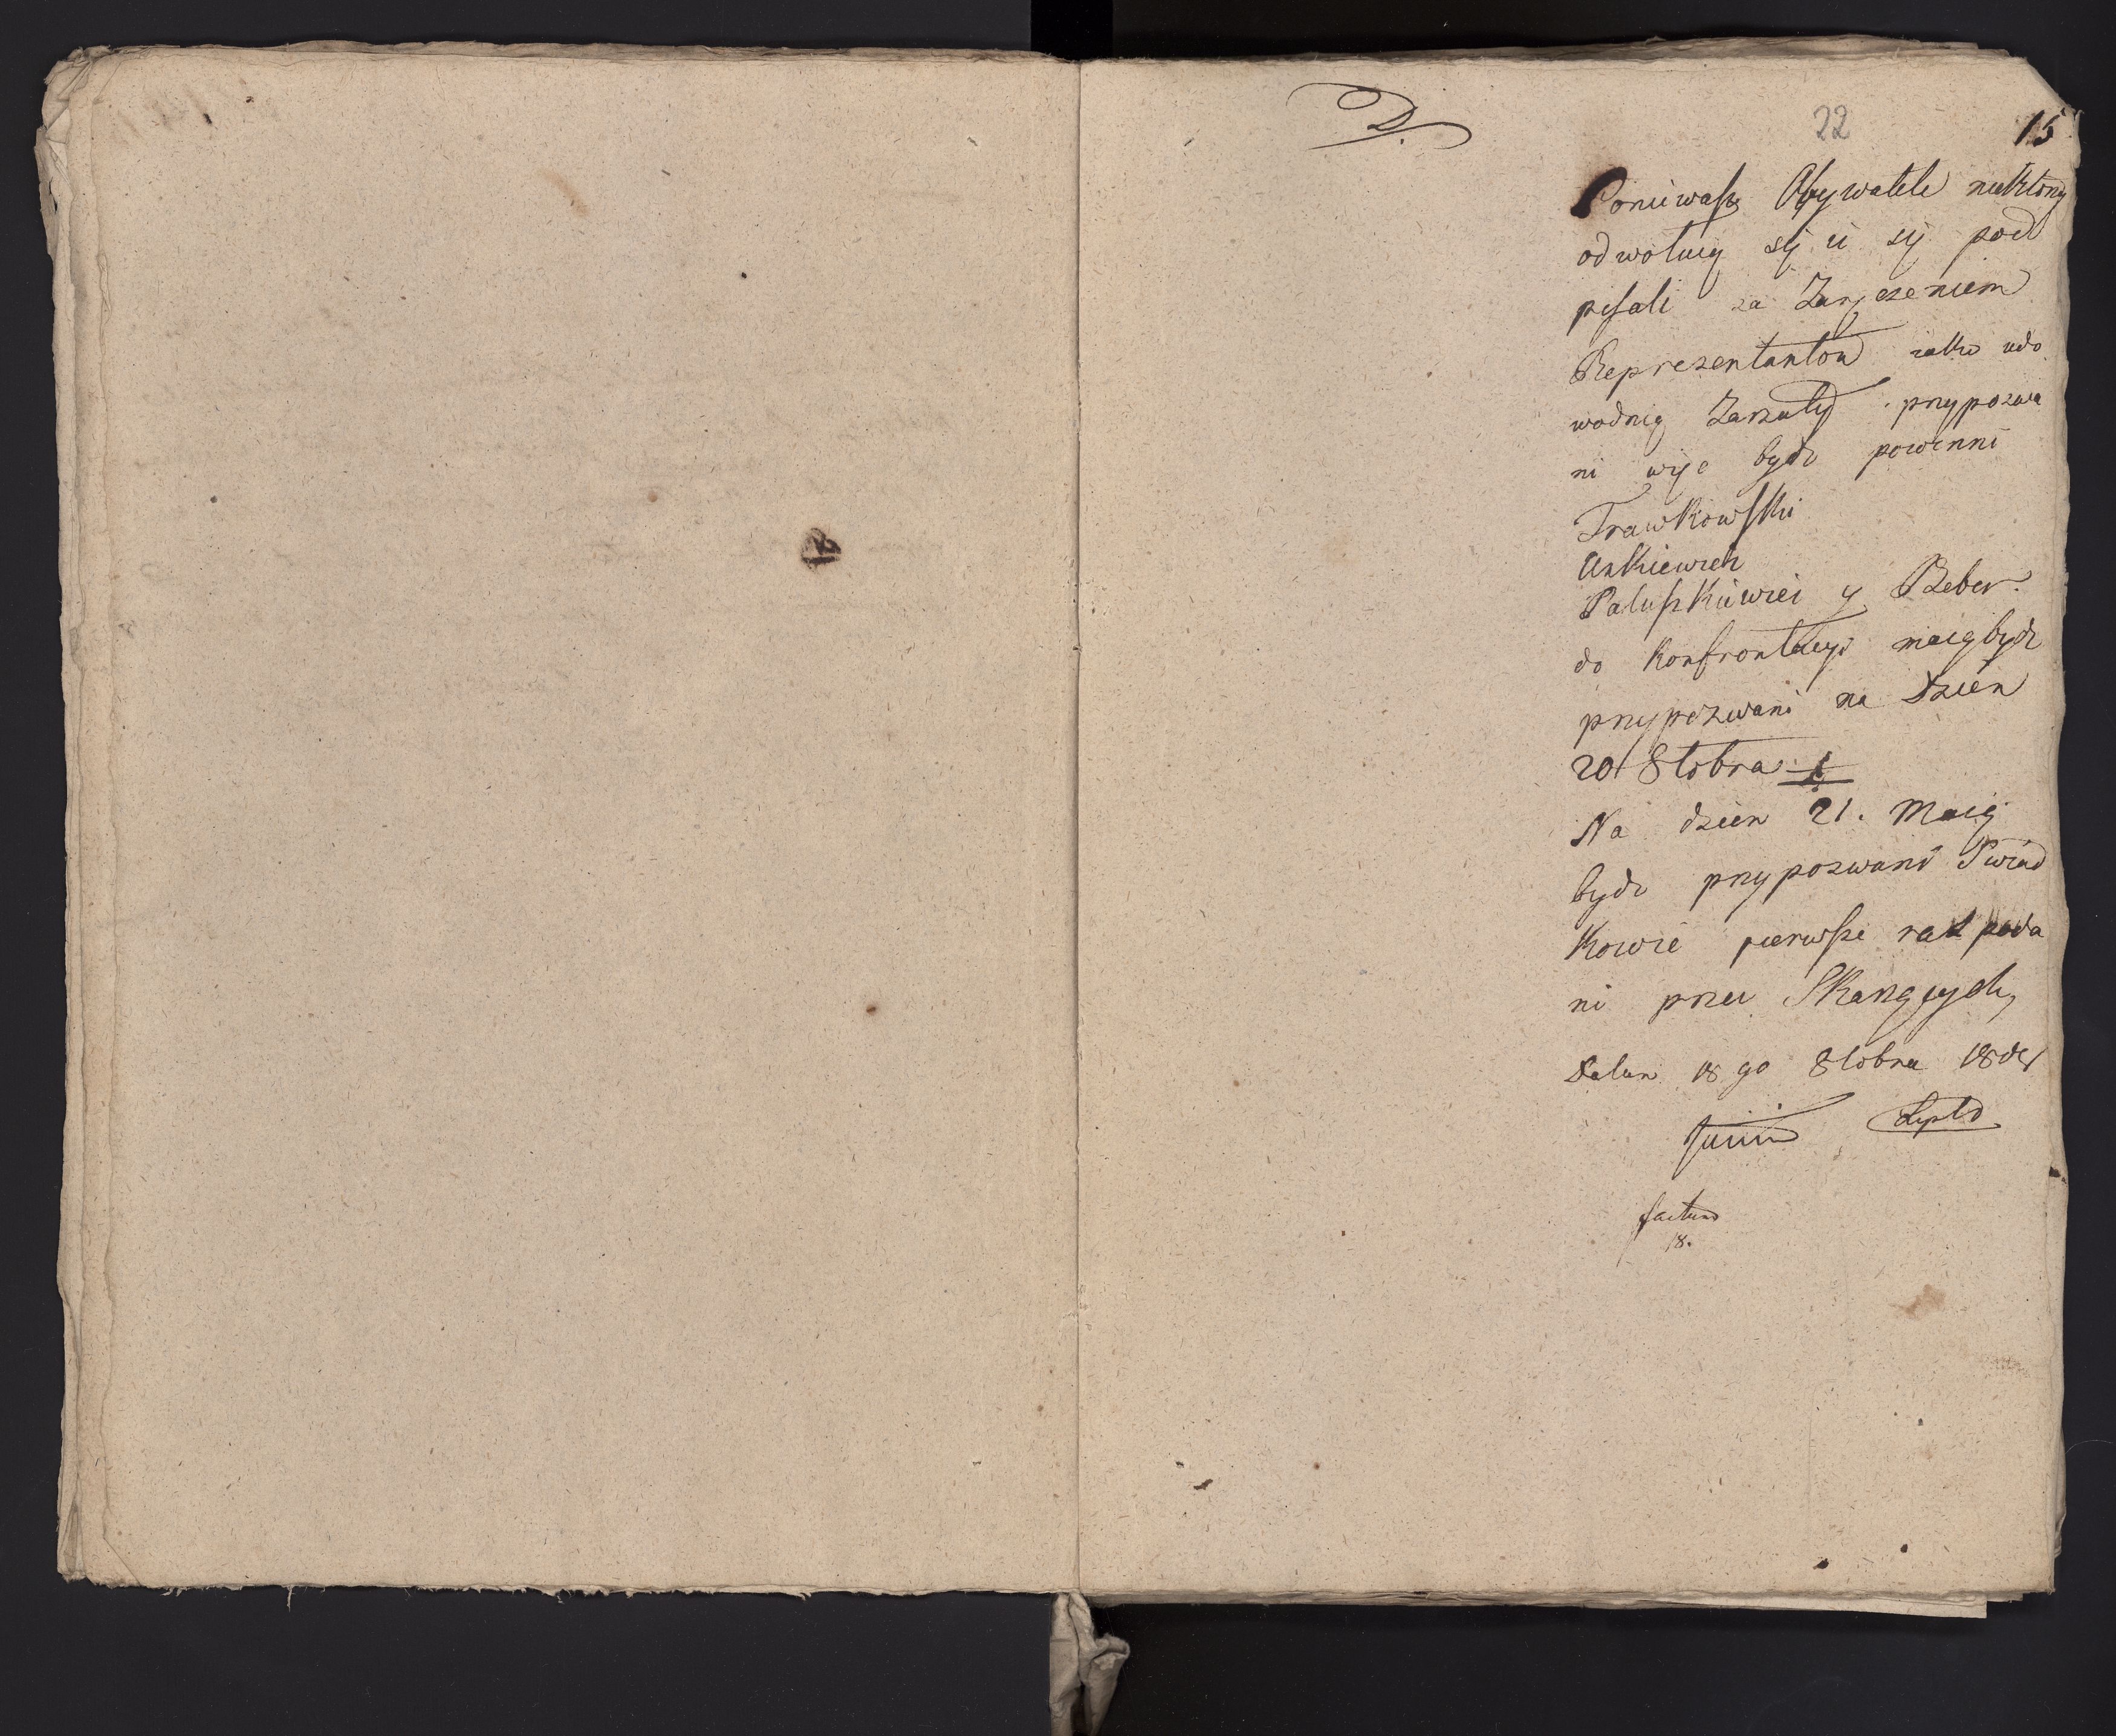 D.
22 15
Poniewasz Obywatele niektorzy
odwołuią się iż się pod
pisali za Zaręczeniem
Reprezentantow iako udo
wodnią Zarzuty przypozwa
ni więc bydz powinni
Trawkowski
Uzkiewicz
Paluszkiewicz y Reber.
do Konfrontacyi maią bydz
przypozwani na Dzień
20 8tobra
Na dzien 21. Maią
bydz przypozwani Świad
Kowie pierwsze raz poda
ni przez Skarzących,
Datum 18go 8tobra
factum
18.